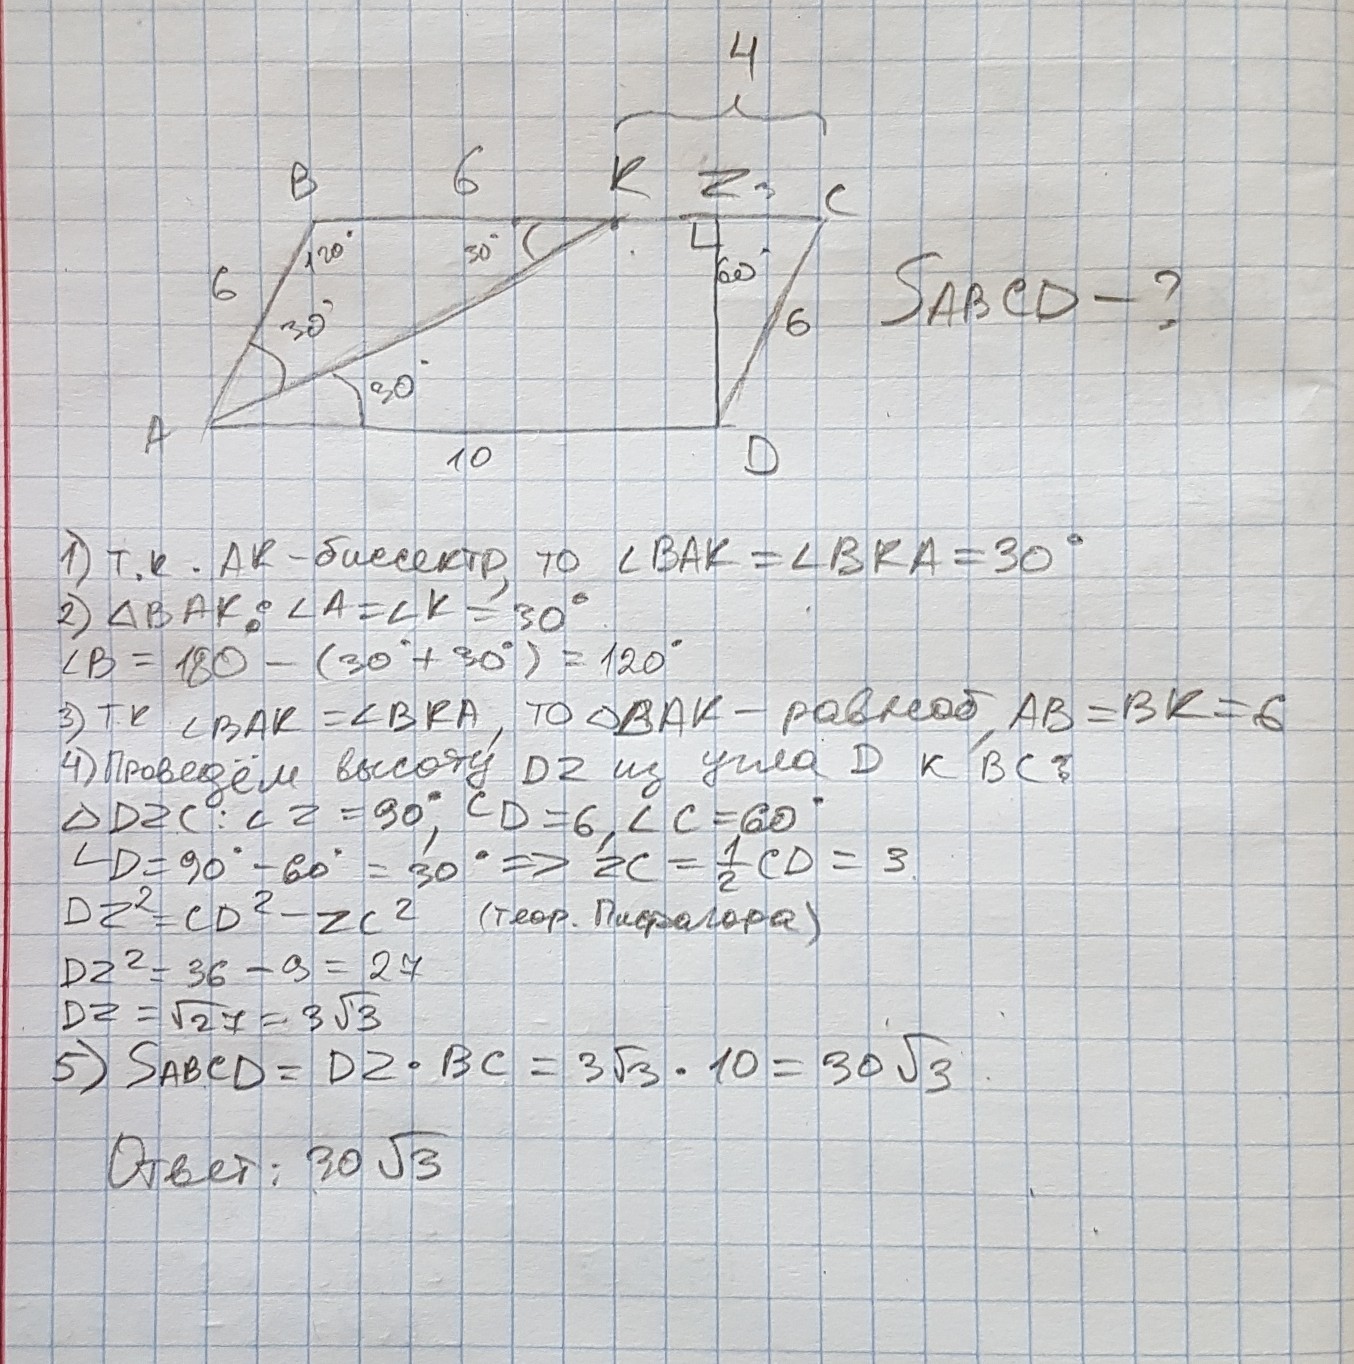 4
B 6 K Z 3 C
120° 30° 60°
6 30° 6
SABCD - ?
30°
A 10 D
1) Т.к. AK - биссектр, то ∠BAK = ∠BKA = 30°
2) △BAK: ∠A = ∠K = 30°
∠B = 180 - (30° + 30°) = 120°
3) Т.к ∠BAK = ∠BKA, то △BAK - равноб, AB = BK = 6
4) Проведём высоту DZ из угла D к BC:
△DZC: ∠Z = 90°, CD = 6, ∠C = 60°
∠D = 90° - 60° = 30° => ZC = 1/2 CD = 3
DZ² = CD² - ZC² (теор. Пифагора)
DZ² = 36 - 9 = 27
DZ = √27 = 3√3
5) SABCD = DZ · BC = 3√3 · 10 = 30√3
Ответ: 30√3